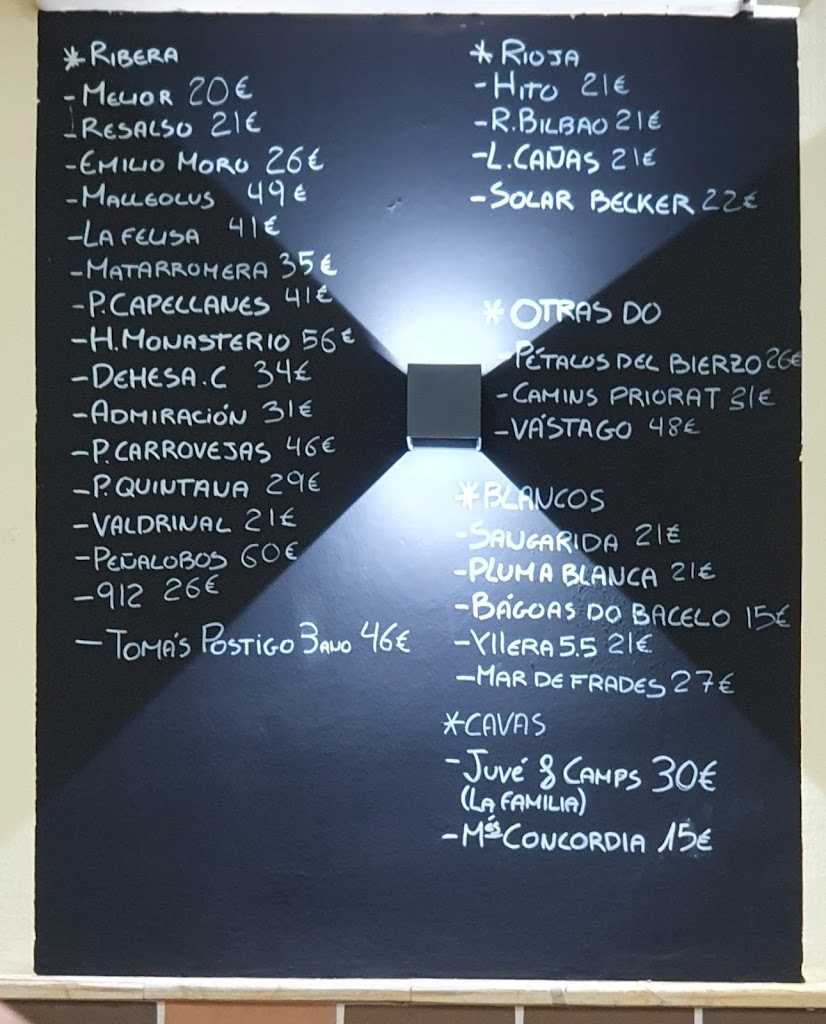 * RIBERA
- MELIOR 20€
- RESALSO 21€
- EMILIO MORO 26€
- MALLEOLUS 49€
- LA FELISA 41€
- MATARROMERA 35€
- P. CAPELLANES 41€
- H. MONASTERIO 56€
- DEHESA. C 34€
- ADMIRACIÓN 31€
- P. CARROVEJAS 46€
- P. QUINTANA 29€
- VALDRINAL 21€
- PEÑALOBOS 60€
- 912 26€
- TOMÁS POSTIGO 3 AÑO 46€
* RIOJA
- HITO 21€
- R. BILBAO 21€
- L. CAÑAS 21€
- SOLAR BECKER 22€
* OTRAS DO
- PÉTALOS DEL BIERZO 26€
- CAMINS PRIORAT 31€
- VÁSTAGO 48€
* BLANCOS
- SANGARIDA 21€
- PLUMA BLANCA 21€
- BÁGOAS DO BACELO 15€
- YLLERA 5.5 21€
- MAR DE FRADES 27€
* CAVAS
- JUVÉ & CAMPS 30€
(LA FAMILIA)
- Més CONCORDIA 15€